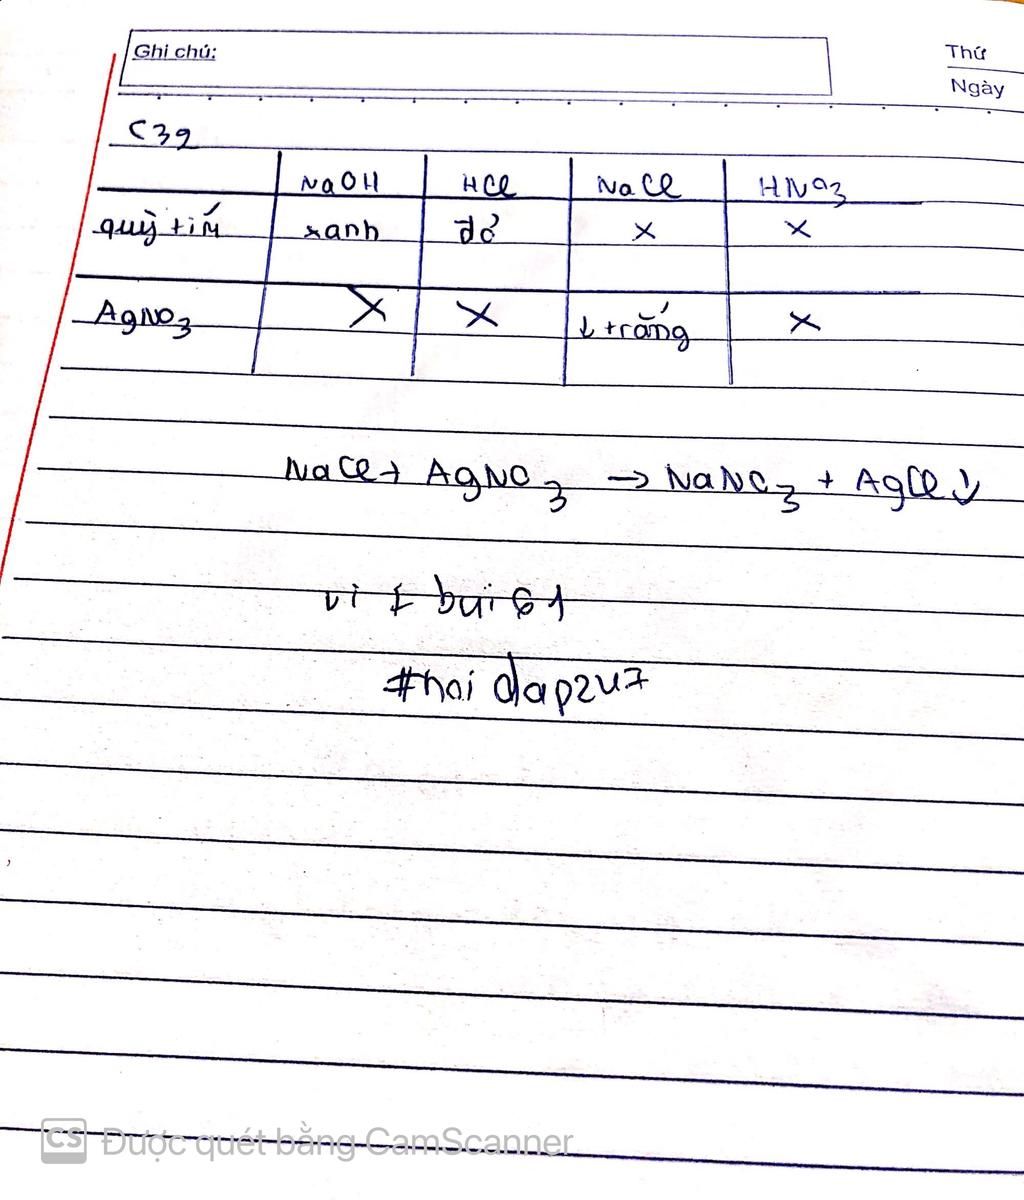 Ghi chú:
Thứ
Ngày
C39
NaOH HCl NaCl HNO3
quỳ tím xanh đỏ x x
AgNO3 X X ↓ trắng x
NaCl + AgNO3 → NaNO3 + AgCl↓
bùi 61
#hoi dap247
CS Được quét bằng CamScanner